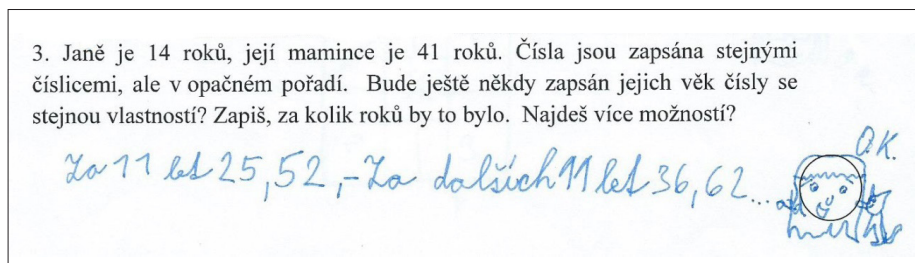 3. Janě je 14 roků, její mamince je 41 roků. Čísla jsou zapsána stejnými
číslicemi, ale v opačném pořadí. Bude ještě někdy zapsán jejich věk čísly se
stejnou vlastností? Zapiš, za kolik roků by to bylo. Najdeš více možností?
O.K.
Za 11 let 25,52,-Za dalších 11 let 36,62...atd